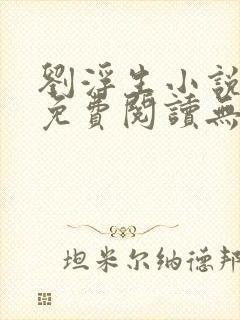 劉浮生小說
免費閱讀無
坦米尔纳德邦